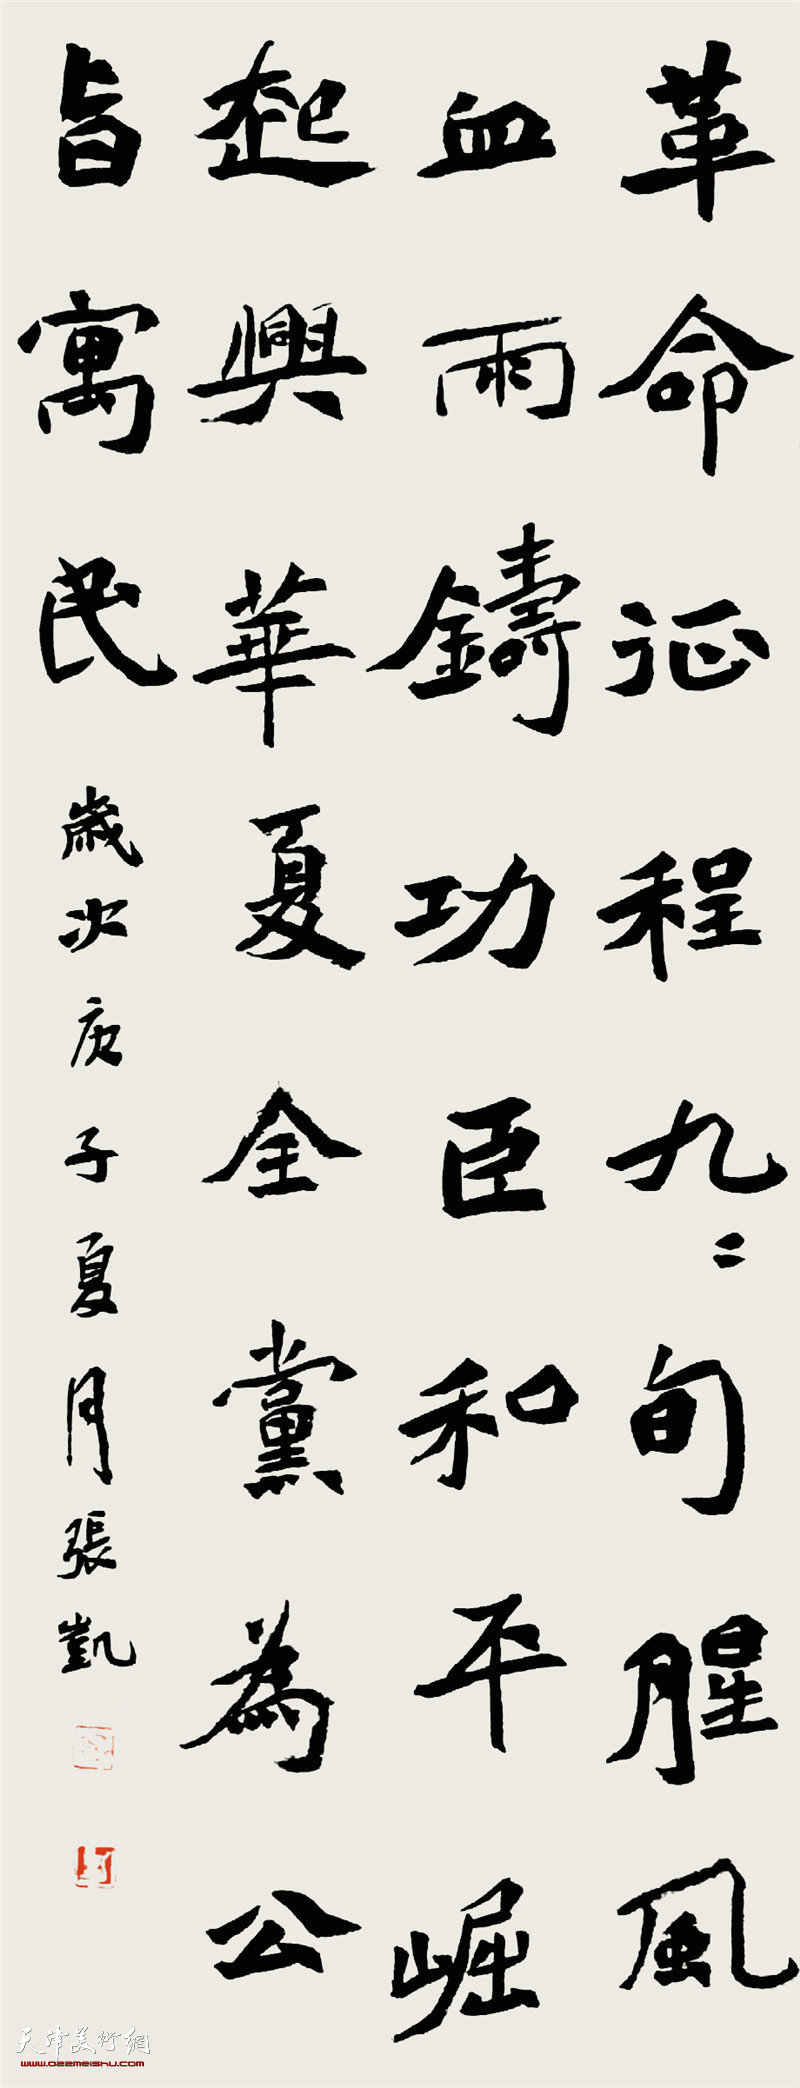 革命征程九〻旬腥風
血雨鑄功臣和平崛
起興華夏全黨為公
旨寓民
歲次庚子夏月張凱
天津美術網
www.022meishu.com